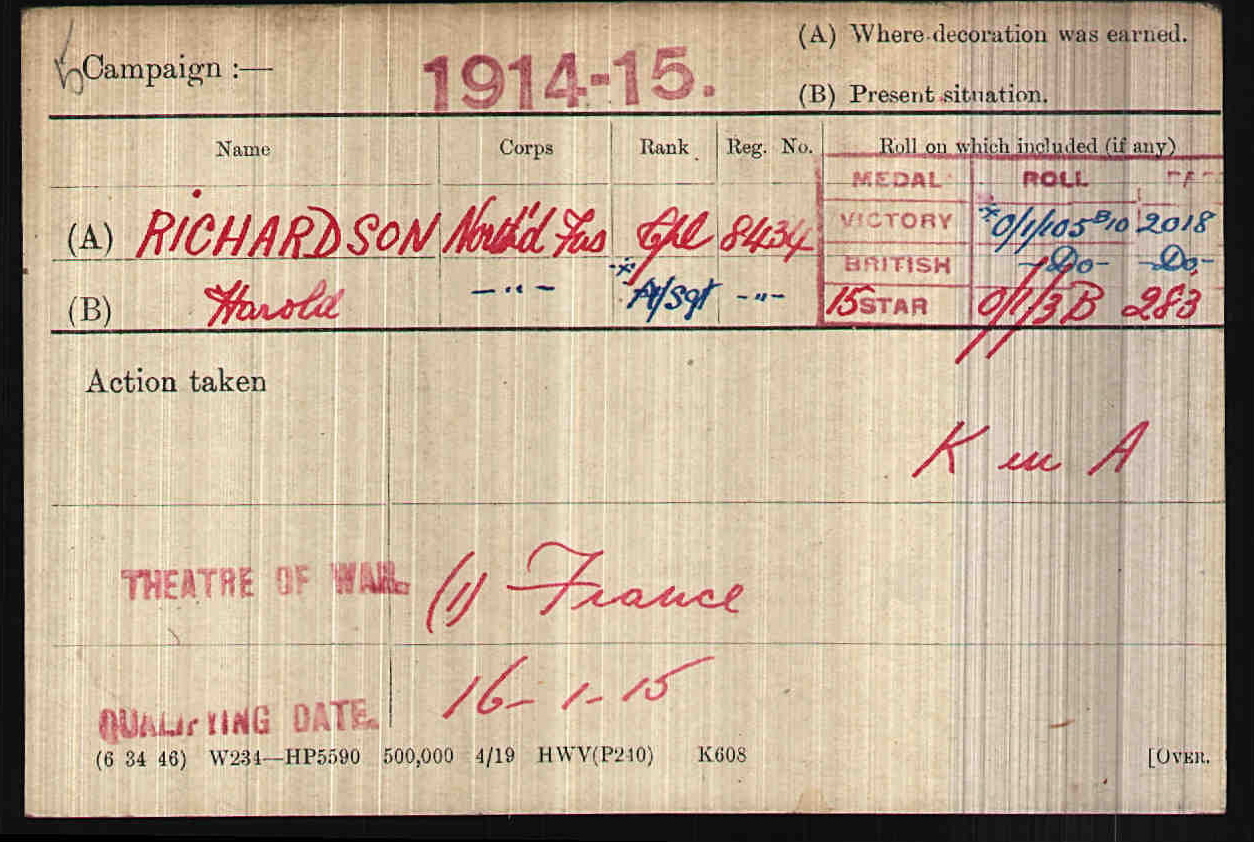 Campaign :— 1914-15. (A) Where decoration was earned.
(B) Present situation.
Name Corps Rank Reg. No. Roll on which included (if any)
MEDAL ROLL
(A) RICHARDSON North'd Fus Cpl 8434 VICTORY *O/1/105 B10 2018
BRITISH -Do- -Do-
(B) Harold - " - *A/Sgt - " - 15 STAR O/1/3 B 283
Action taken
K in A
THEATRE OF WAR. (1) France
QUALIFYING DATE. 16-1-15
(6 34 46) W234—HP5590 500,000 4/19 HWV(P240) K608 [OVER.